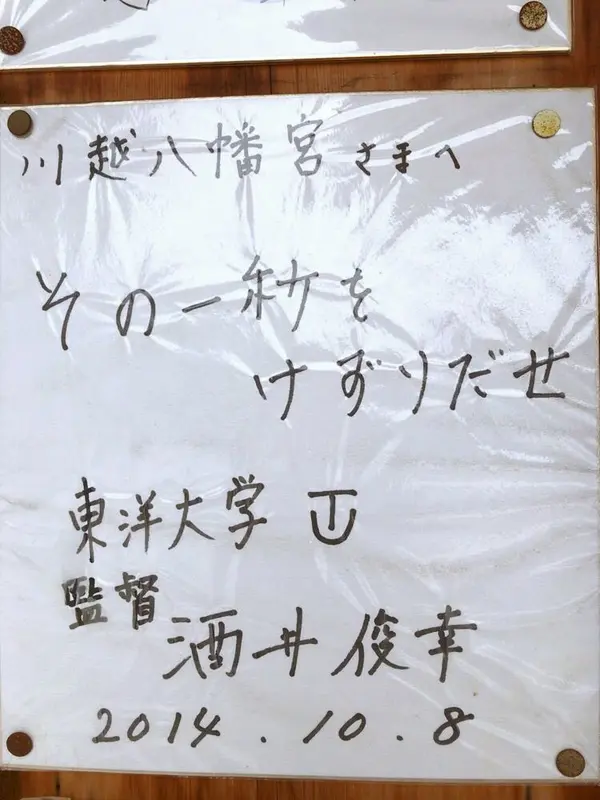 川越八幡宮さまへ
その一秒を
けずりだせ
東洋大学
監督 酒井俊幸
2014.10.8